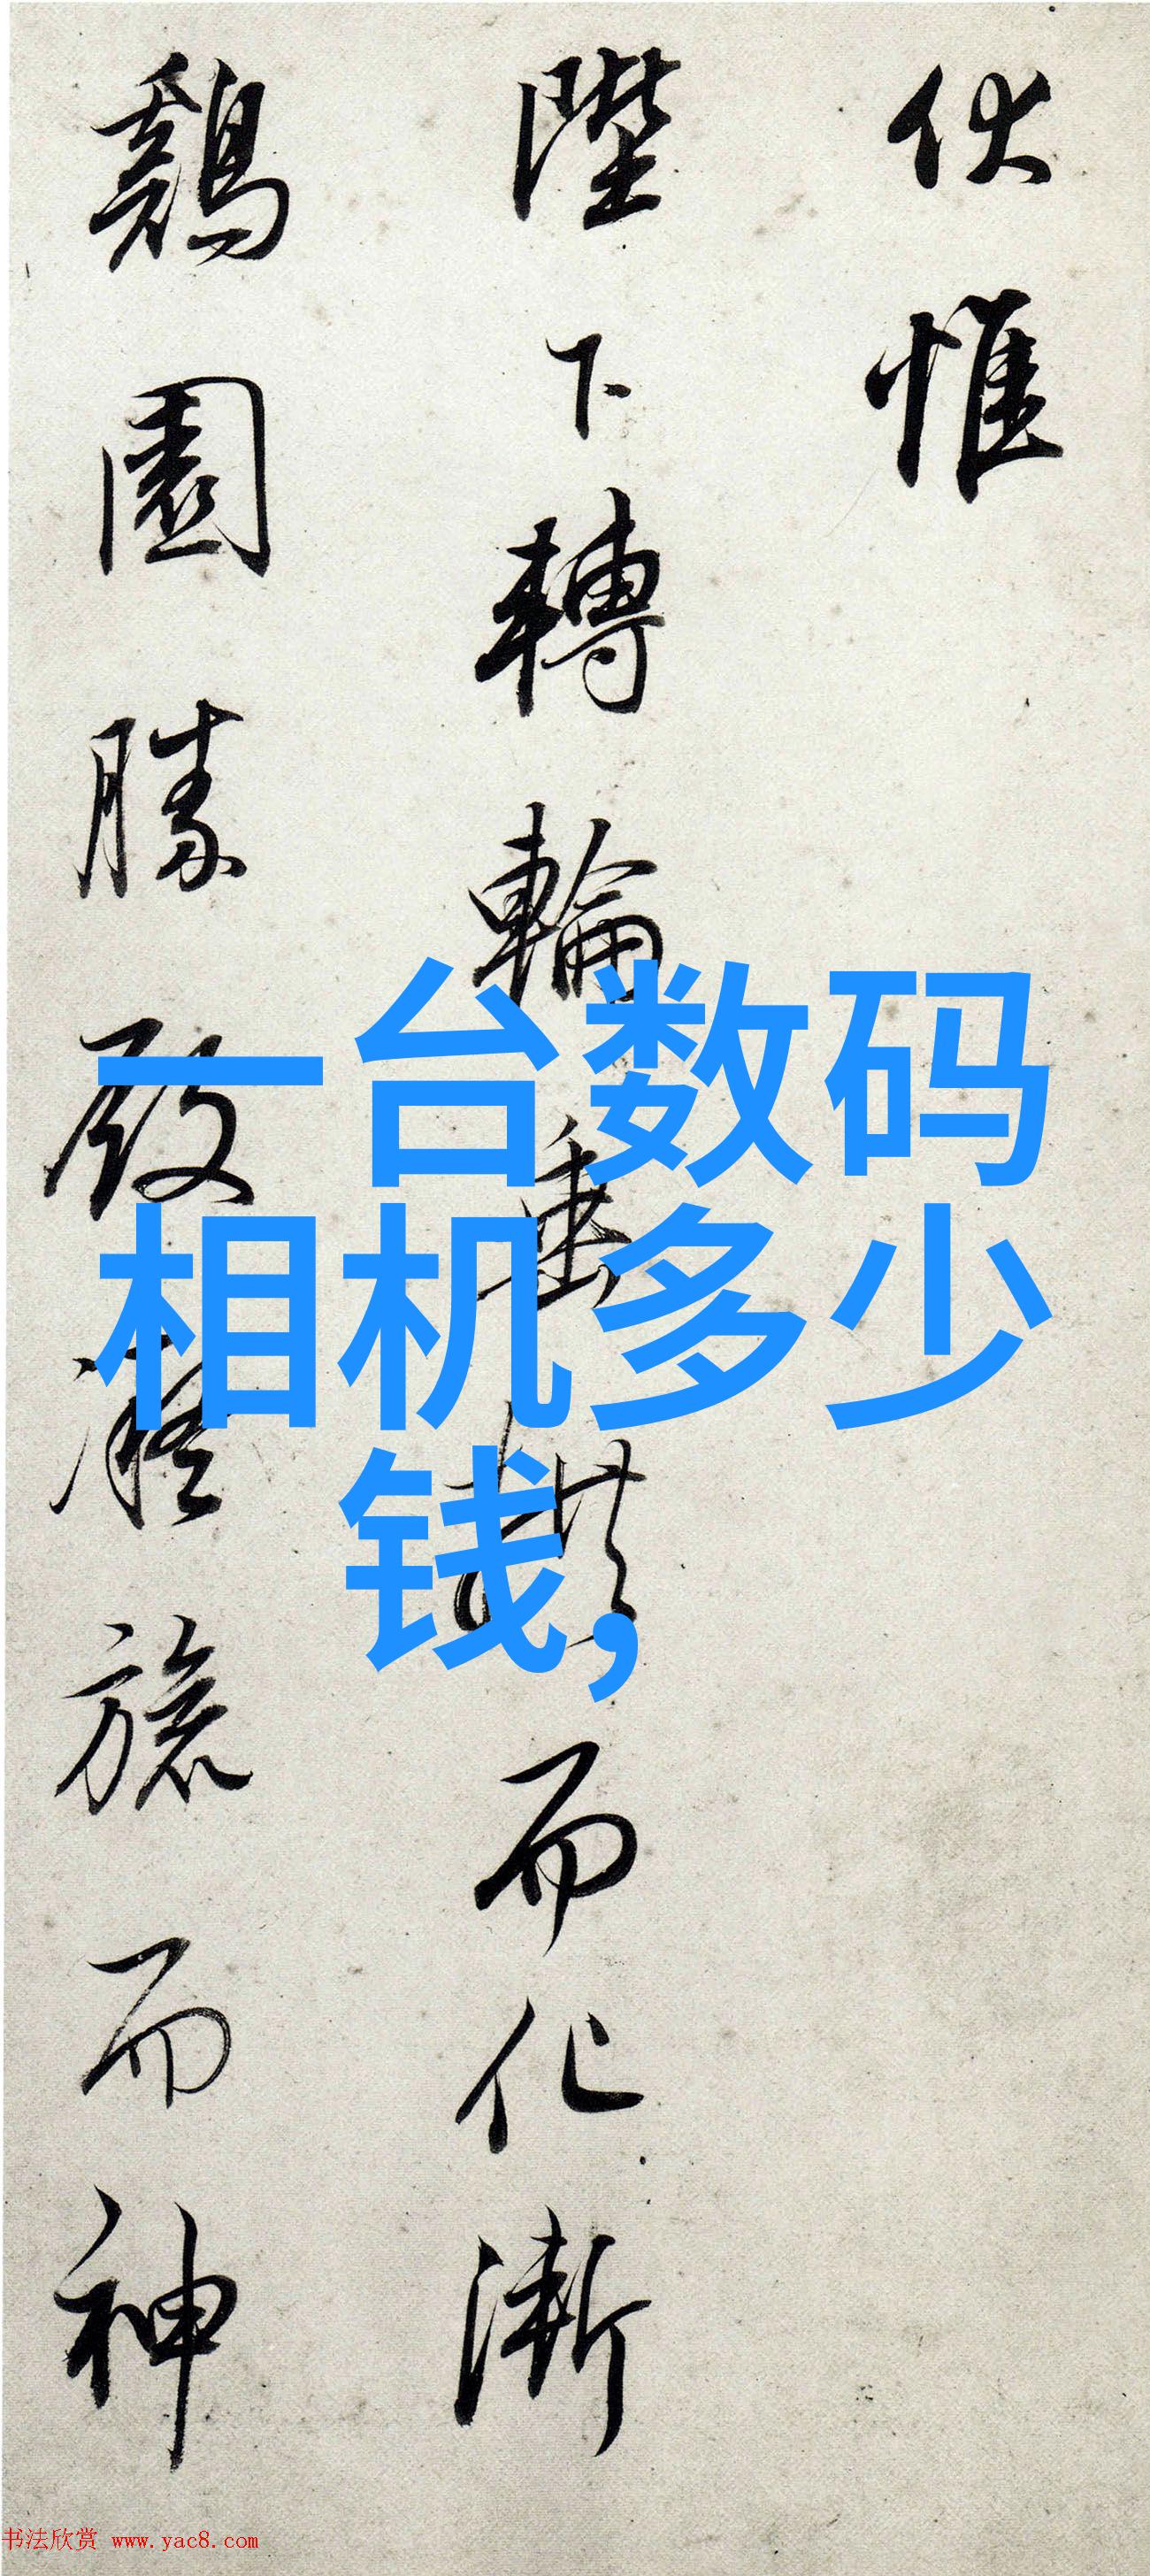 伏惟
陛下轉輪垂拱而化漸
鷄園勝殿凝旒而神
一台数码
相机多少
钱,
书法欣赏 www.yac8.com